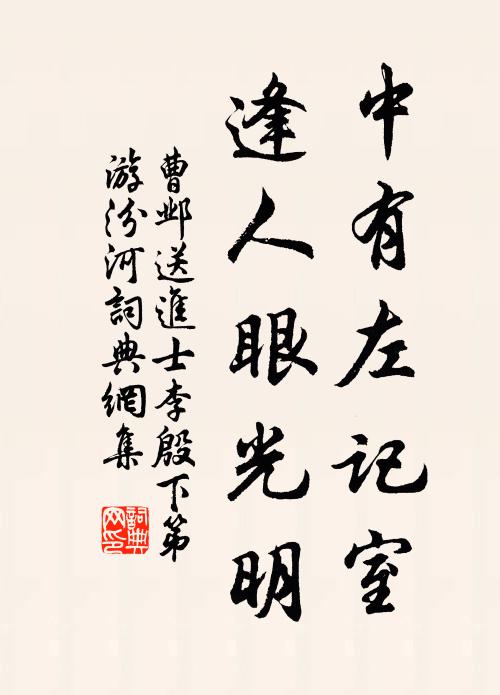 中有左记室
逢人眼光明
曹邺送進士李殷下第
游汾河詞典網集
詞典网印